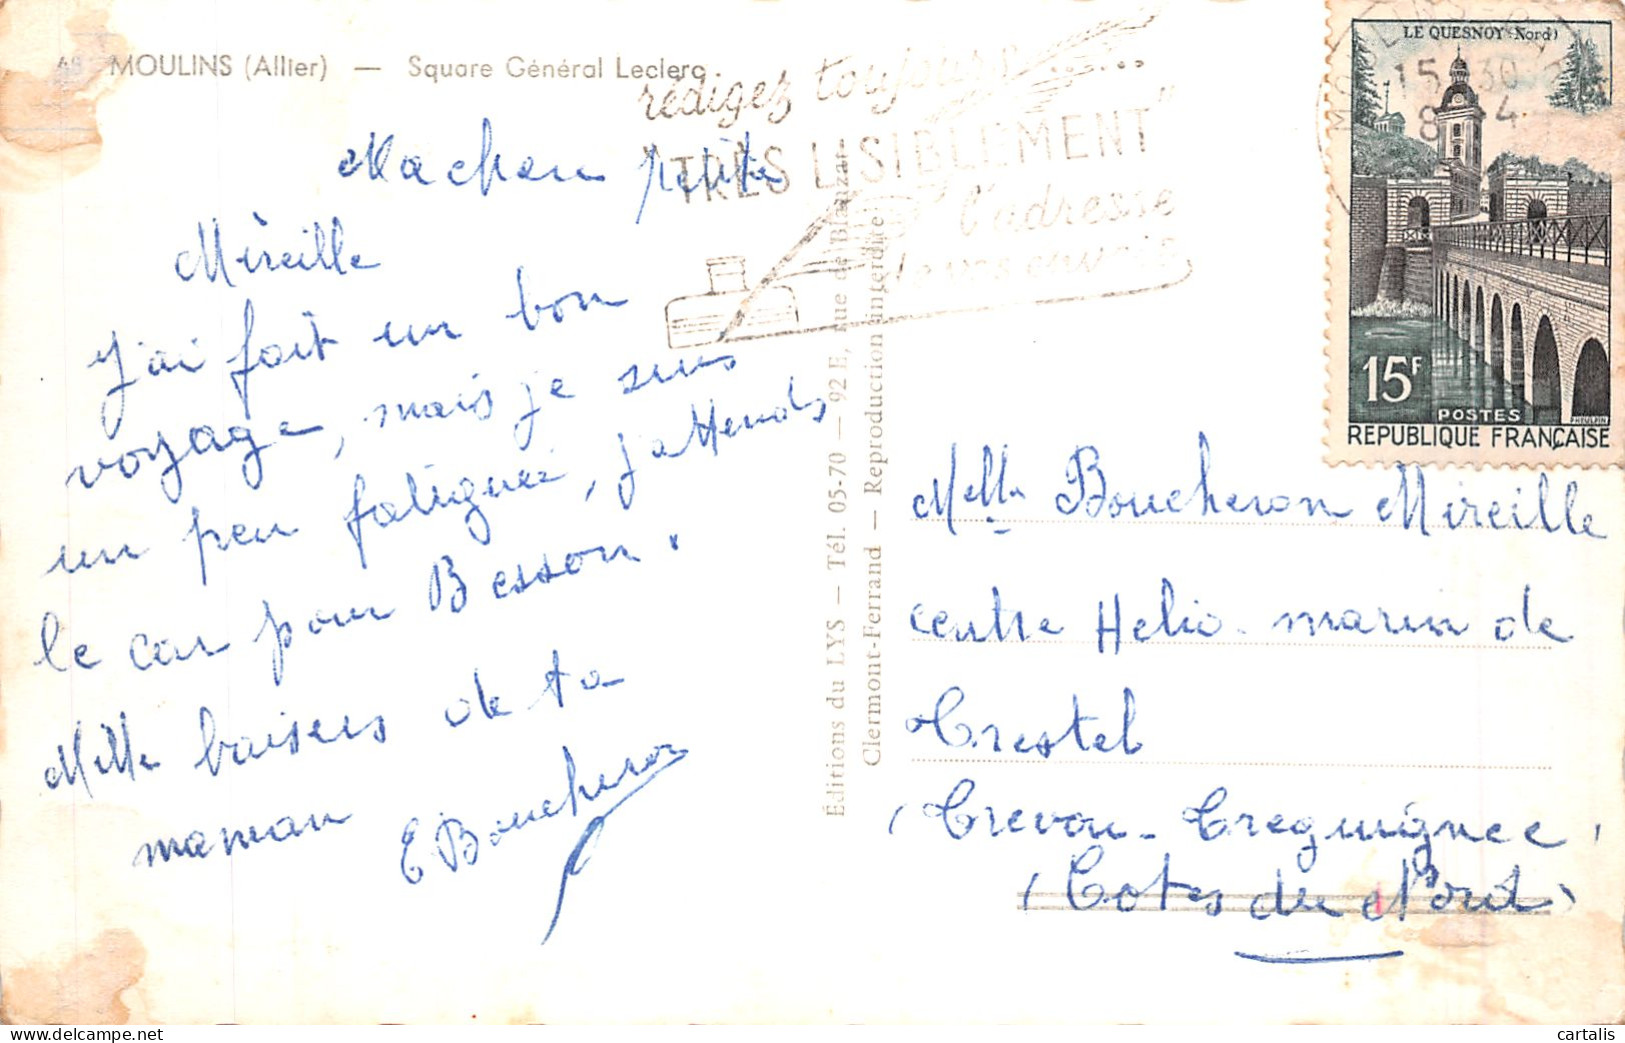 48 MOULINS (Allier) — Square Général Leclerc.
rédigez toujours
"TRÈS LISIBLEMENT"
l'adresse
de vos envois
LE QUESNOY (Nord)
15 30
8 4
15F
POSTES
REPUBLIQUE FRANÇAISE
Ma chere petite
Mireille
J'ai fait un bon
voyage, mais je suis
un peu fatiguée, j'attends
le car pour Besson.
Mille baisers de ta
maman E Boucheron
Éditions du LYS — Tél. 05-70 — 92 E, rue de Blanzat
Clermont-Ferrand — Reproduction interdite
Melle Boucheron Mireille
centre Helio-marin de
Trestel
(Trevou-Treguignec)
(Cotes du Nord)
cartalis